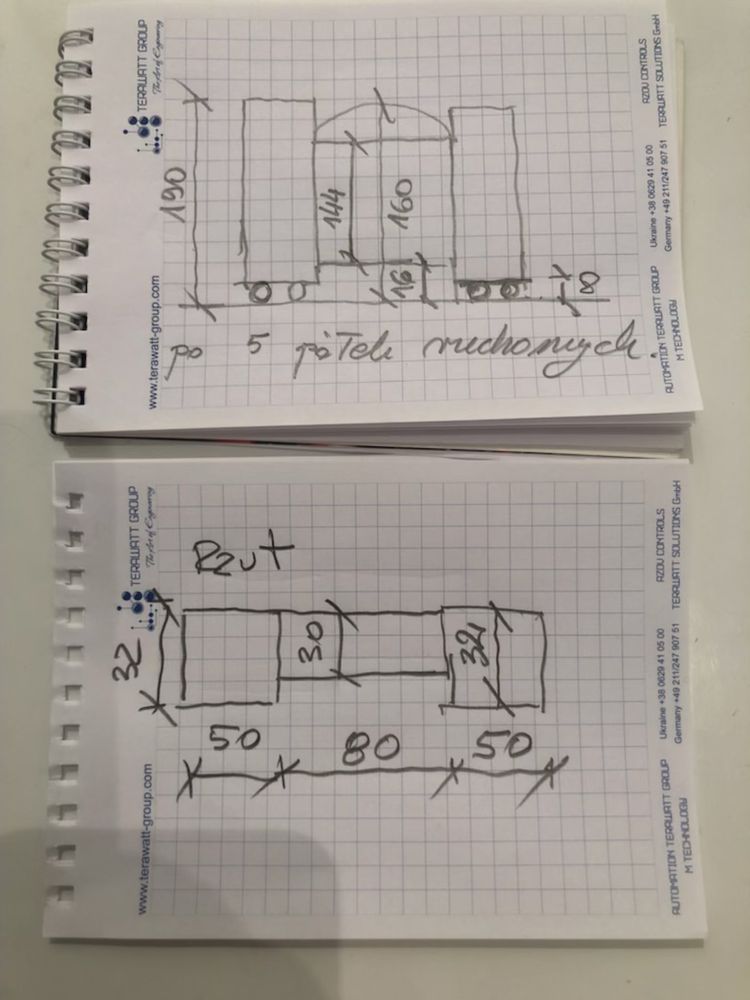 TERAWATT GROUP
The Art of Engineering
www.terawatt-group.com
190
144
160
16
8
po 5 półek ruchomych.
AZOV CONTROLS
TERAWATT SOLUTIONS GmbH
Ukraine +38 0629 41 05 00
Germany +49 211/247 907 51
AUTOMATION TERAWATT GROUP
M TECHNOLOGY
TERAWATT GROUP
The Art of Engineering
www.terawatt-group.com
Rzut
32
30
32
50
80
50
AZOV CONTROLS
TERAWATT SOLUTIONS GmbH
Ukraine +38 0629 41 05 00
Germany +49 211/247 907 51
AUTOMATION TERAWATT GROUP
M TECHNOLOGY